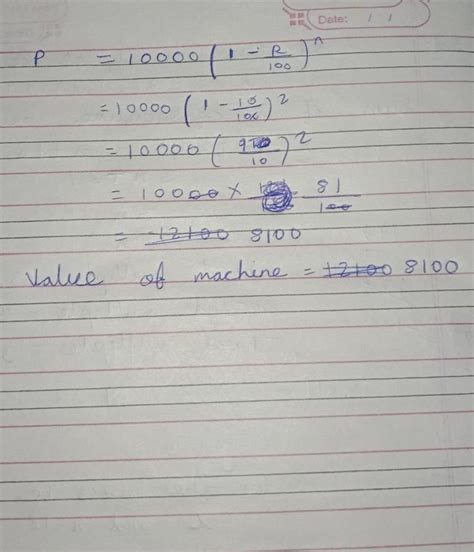 Date: / /
P = 10000 (1 - R/100)^n
= 10000 (1 - 10/100)^2
= 10000 (9/10)^2
= 10000 × 81/100
= 12100 8100
Value of machine = 12100 8100